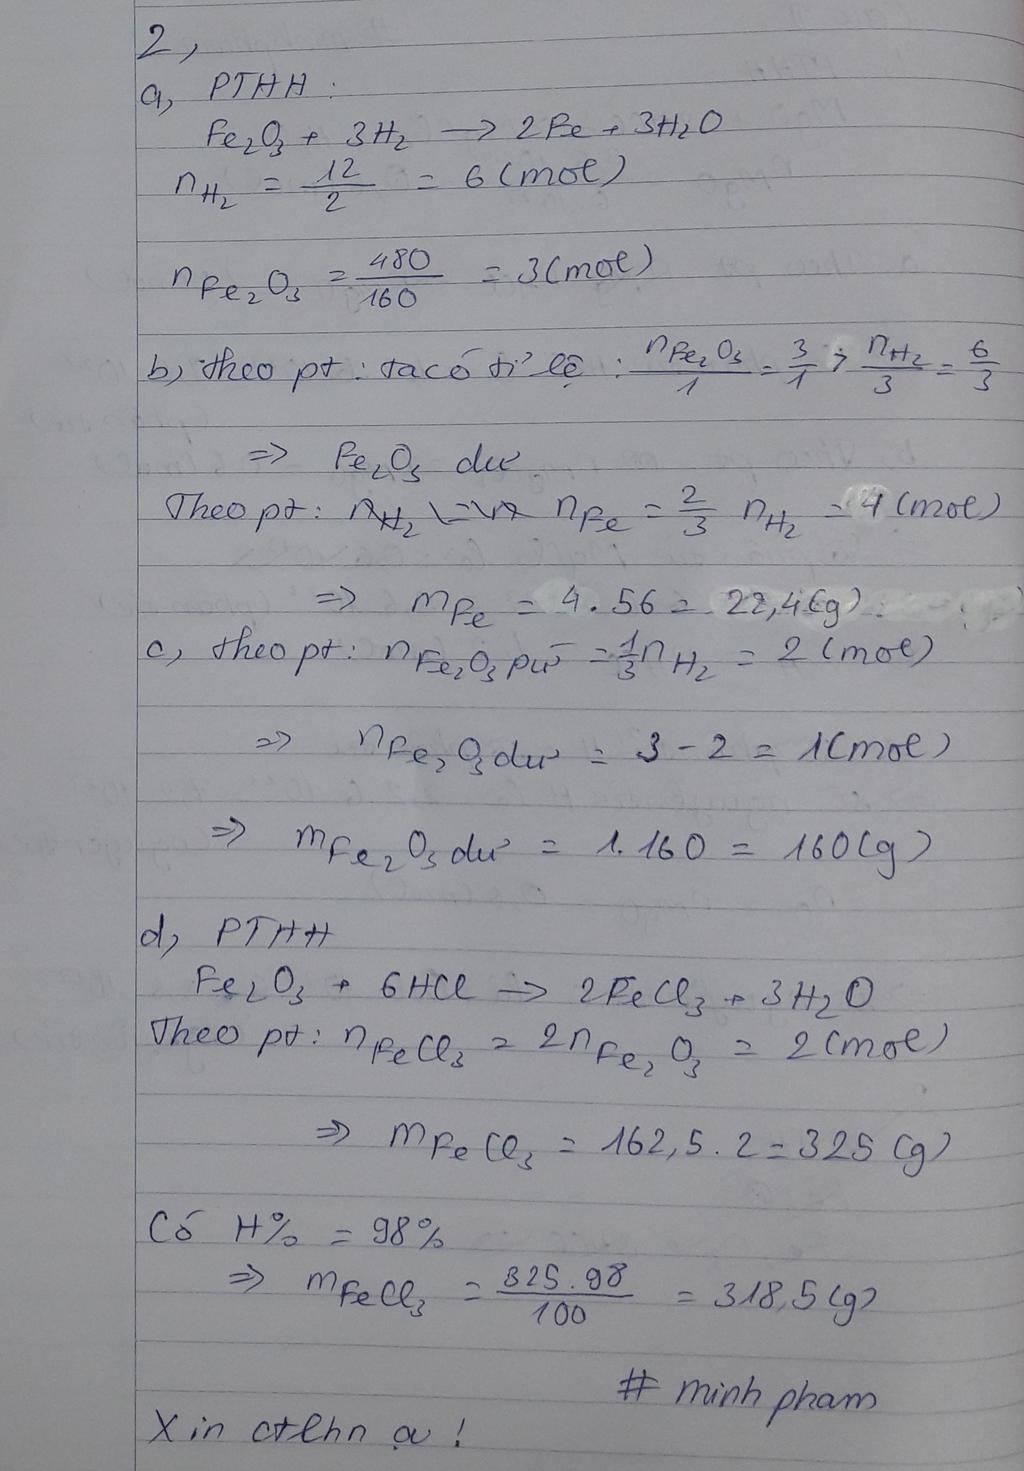 2,
a, PTHH:
Fe₂O₃ + 3H₂ → 2Fe + 3H₂O
nH₂ = 12/2 = 6 (mol)
nFe₂O₃ = 480/160 = 3 (mol)
b, theo pt: ta có tỉ lệ: nFe₂O₃/1 = 3/1 > nH₂/3 = 6/3
=> Fe₂O₃ dư
Theo pt: nFe = 2/3 nH₂ = 4 (mol)
=> mFe = 4.56 = 22,4 (g)
c, theo pt: nFe₂O₃ pư = 1/3 nH₂ = 2 (mol)
=> nFe₂O₃ dư = 3 - 2 = 1 (mol)
=> mFe₂O₃ dư = 1.160 = 160 (g)
d, PTHH
Fe₂O₃ + 6HCl → 2FeCl₃ + 3H₂O
Theo pt: nFeCl₃ = 2nFe₂O₃ = 2 (mol)
=> mFeCl₃ = 162,5.2 = 325 (g)
Có H% = 98%
=> mFeCl₃ = 325.98/100 = 318,5 (g)
# minh pham
Xin ctlhn ạ!